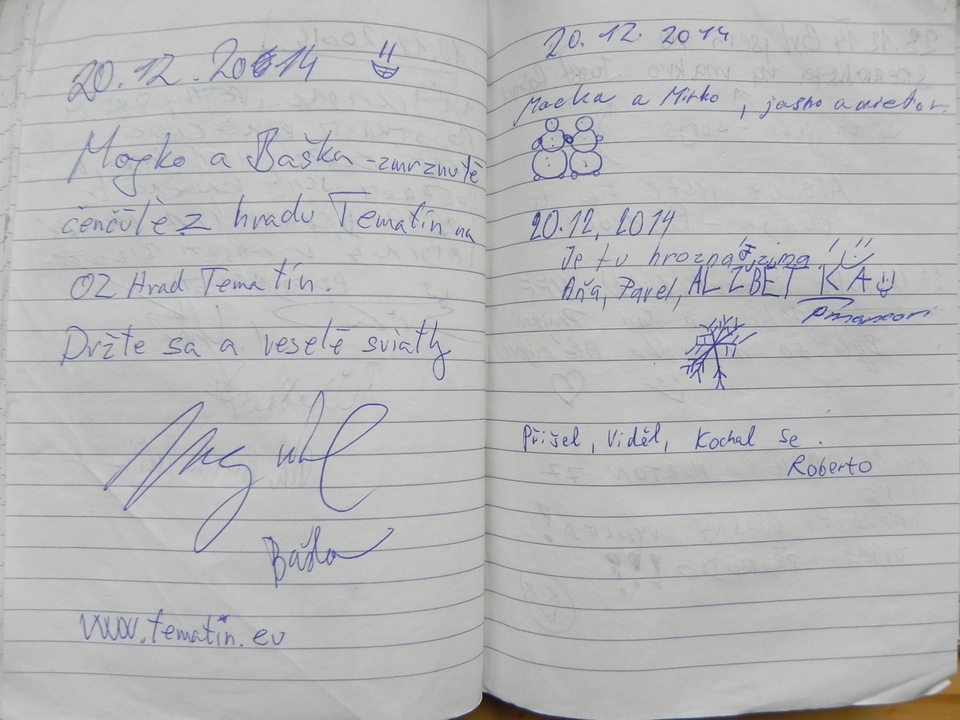 20.12.2014
Mogko a Baška - zmrznuté
čenčúle z hradu Tematín na
OZ Hrad Tematín.
Držte sa a veselé sviatky
Baška
www.tematin.eu
20.12.2014
Macka a Mirko, jasno a vietor.
20.12.2014
Je tu hrozná zima!
Aňa, Pavel, ALŽBETKA
Přišel, Viděl, Kochal se.
Roberto